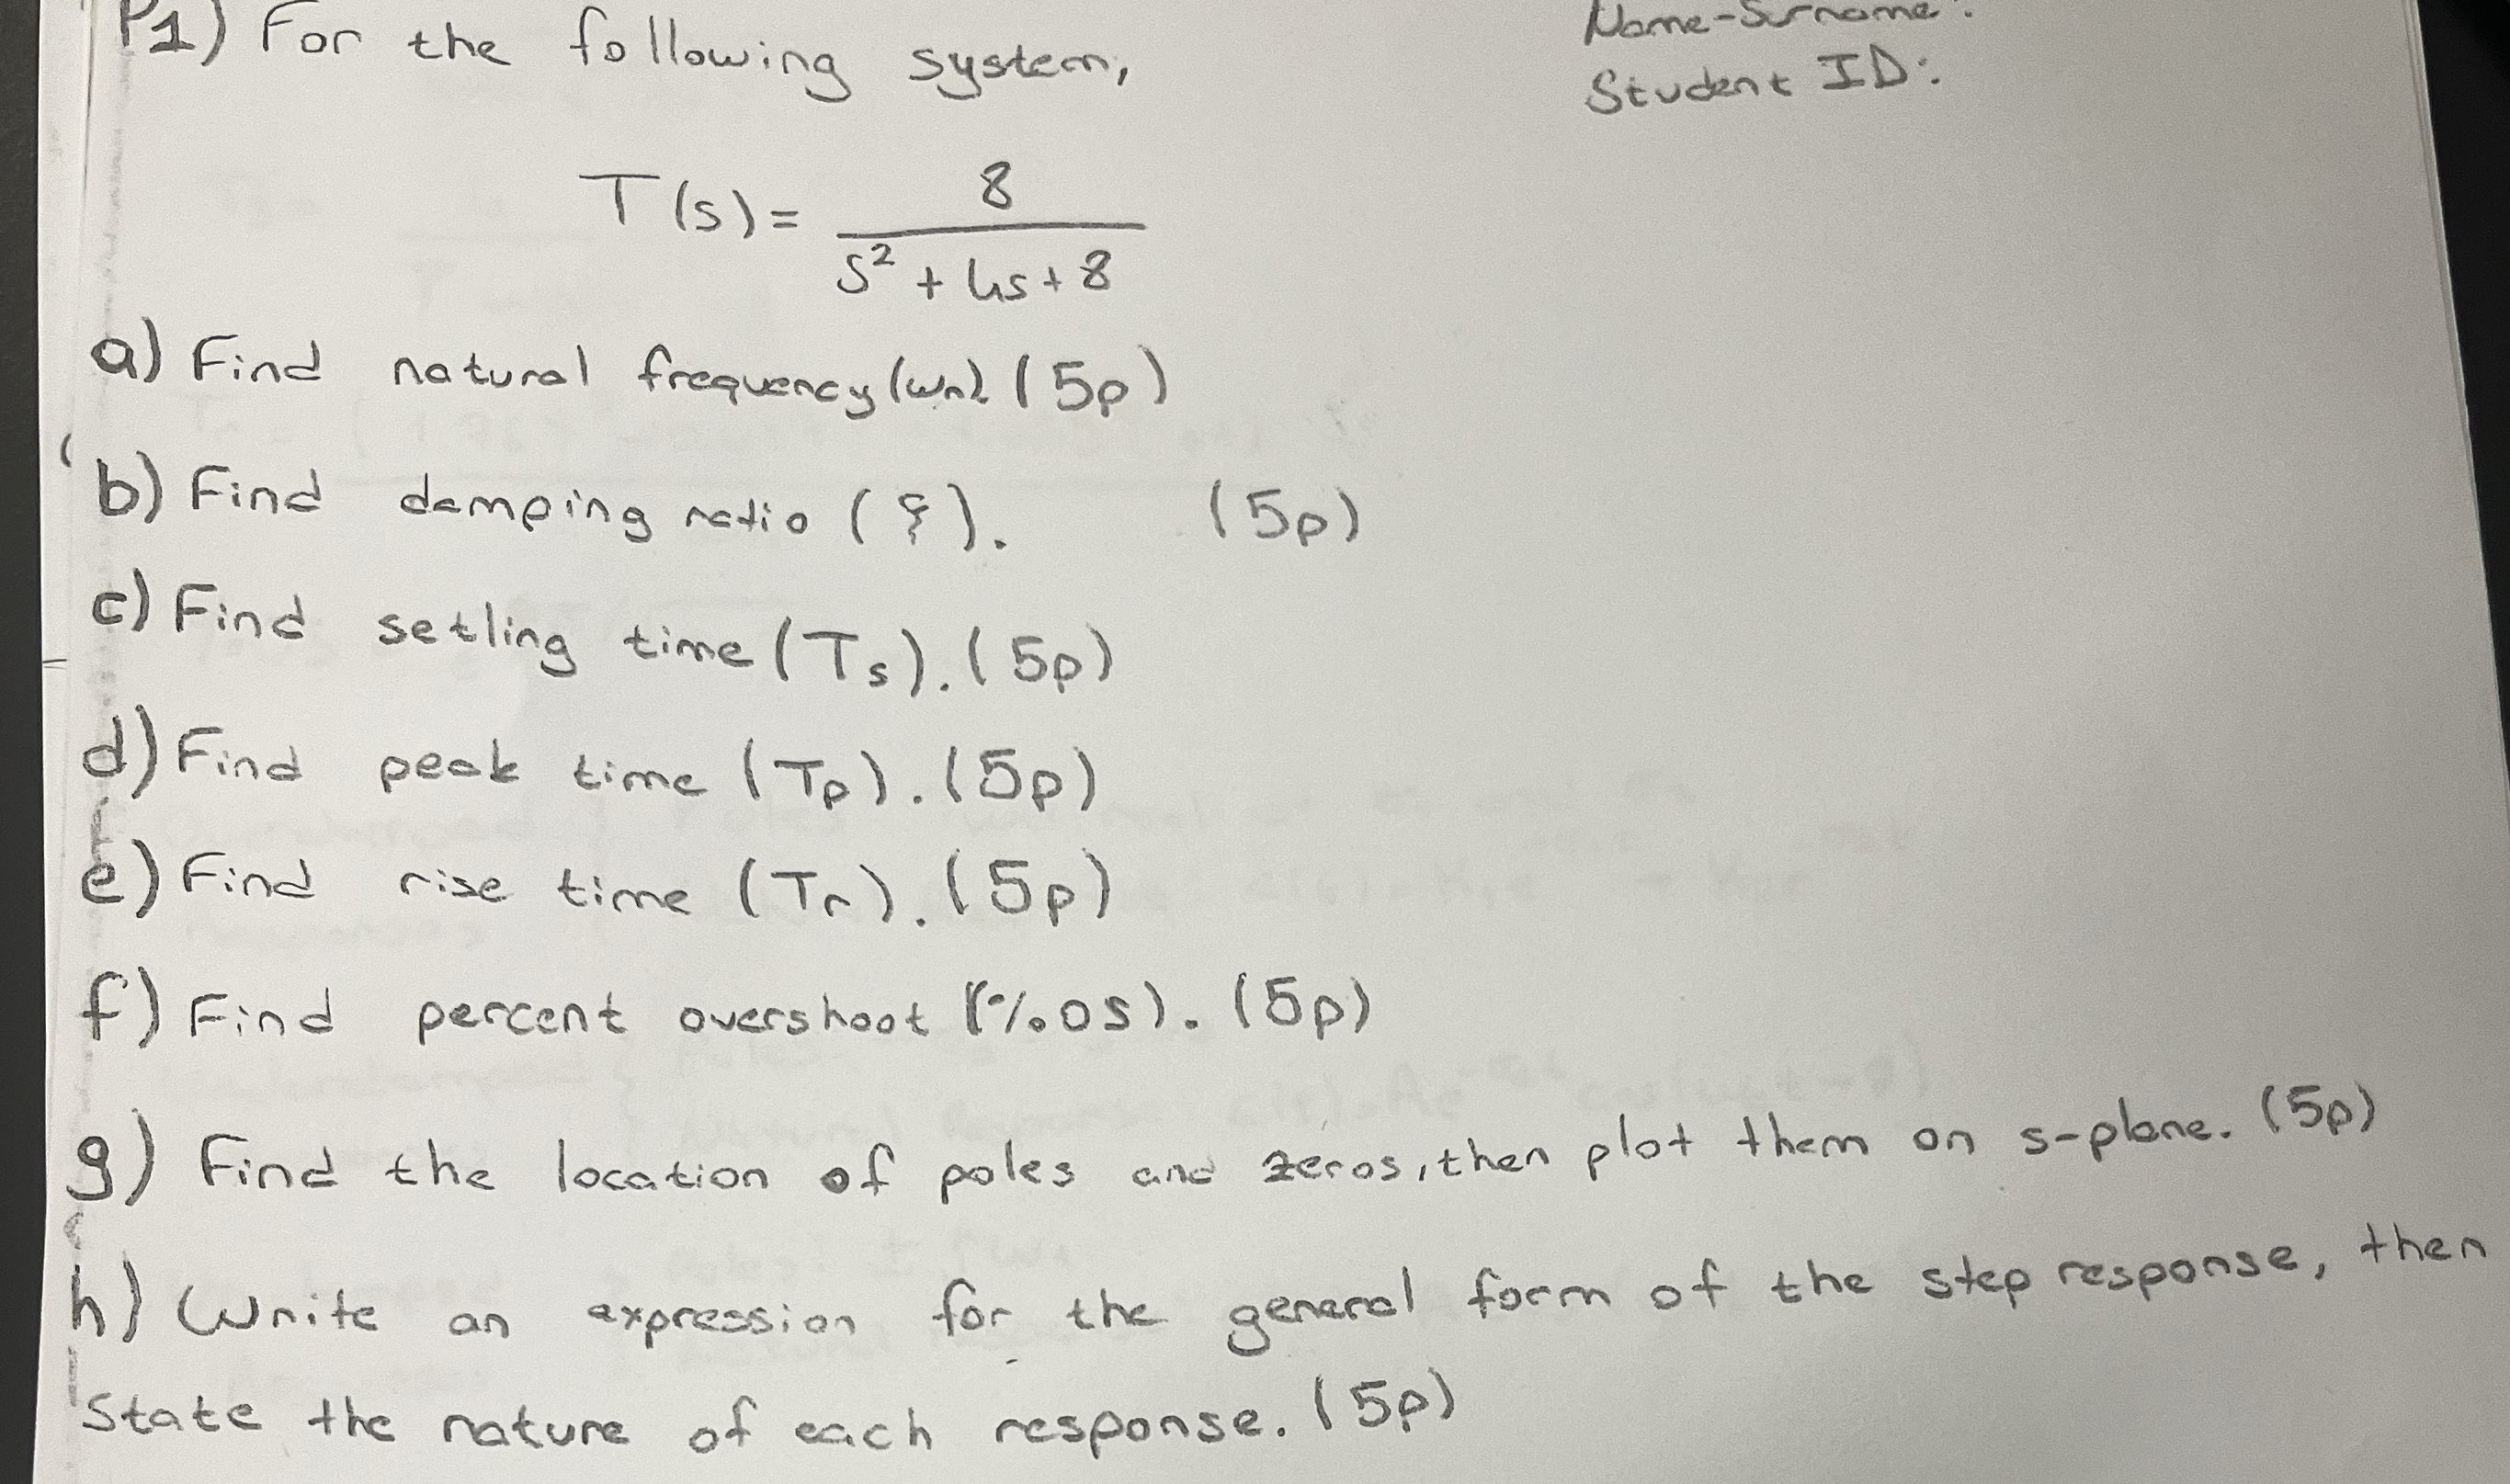 P1) For the following system,
Name-Surname:
Student ID:
T(s) = 8 / (s² + 4s + 8)
a) Find natural frequency (ωn). (5p)
b) Find damping ratio (ξ). (5p)
c) Find setling time (Ts). (5p)
d) Find peak time (Tp). (5p)
e) Find rise time (Tr). (5p)
f) Find percent overshoot (%OS). (5p)
g) Find the location of poles and zeros, then plot them on s-plane. (5p)
h) Write an expression for the general form of the step response, then
State the nature of each response. (5p)